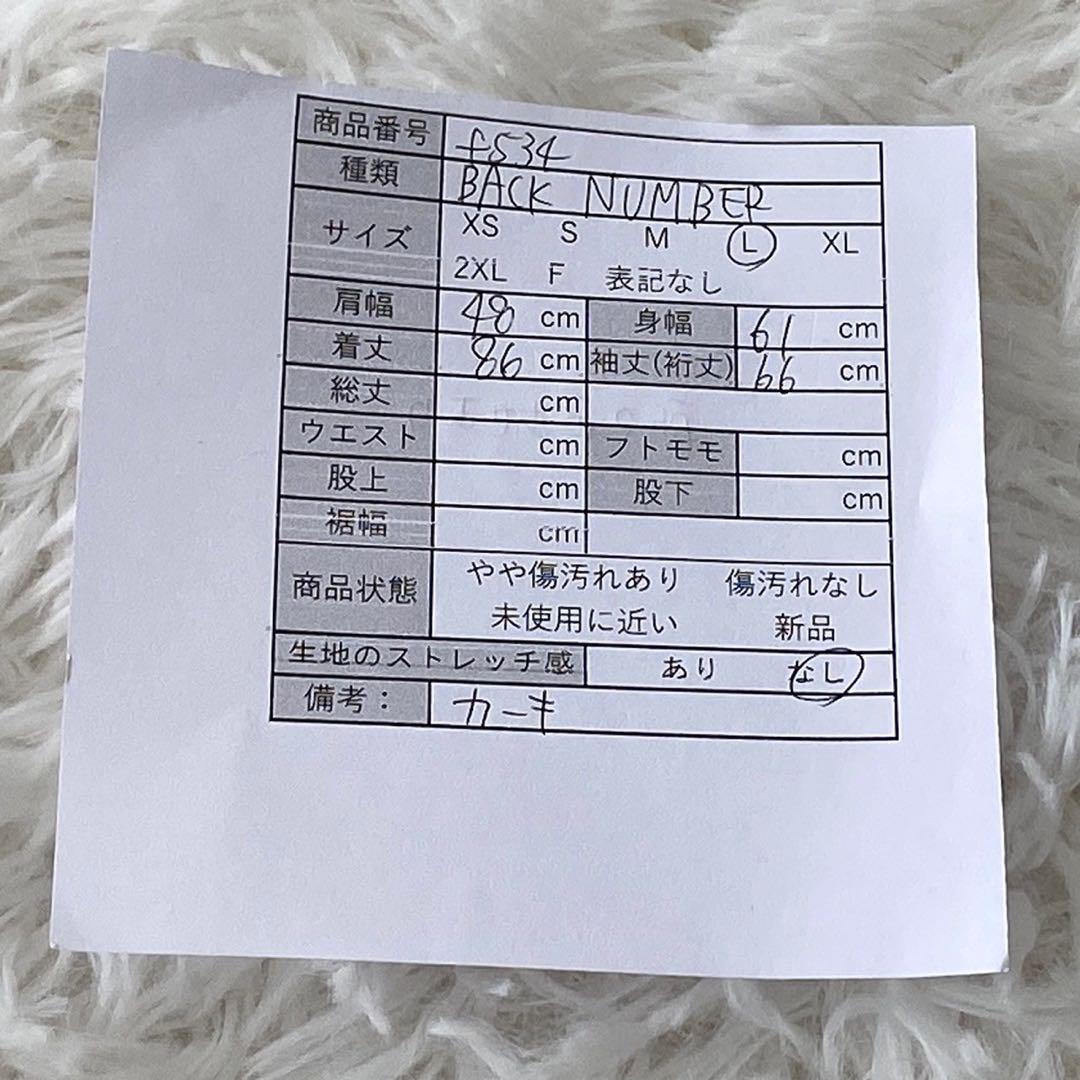 商品番号 f534
種類 BACK NUMBER
サイズ XS S M L XL
2XL F 表記なし
肩幅 48 cm 身幅 61 cm
着丈 86 cm 袖丈(裄丈) 66 cm
総丈 cm
ウエスト cm フトモモ cm
股上 cm 股下 cm
裾幅 cm
商品状態 やや傷汚れあり 傷汚れなし
未使用に近い 新品
生地のストレッチ感 あり なし
備考： カーキ